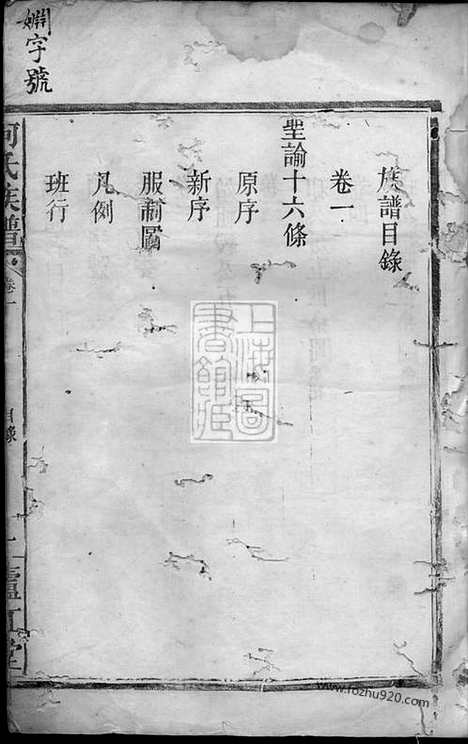 嫻字號
族譜目錄
卷一
聖諭十六條
原序
新序
服制圖
凡例
班行
何氏族譜
卷一
目錄
一
廬江堂
上海圖書館藏
www.fozhu920.com